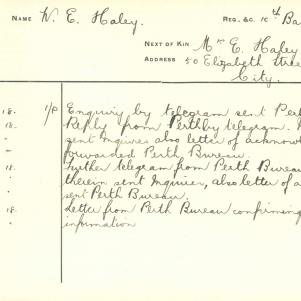 NAME W. E. Haley. REG., &C. 10th Ba
NEXT OF KIN Mr E. Haley
ADDRESS 50 Elizabeth Stree
City.
18. 1/P Enquiry by telegram sent Per
18. Reply from Perth by telegram.
sent Inquirer also letter of acknow
forwarded Perth Bureau.
18. Further telegram from Perth Bureau
therein sent Inquirer, also letter of a
sent Perth Bureau.
18. Letter from Perth Bureau confirming
information